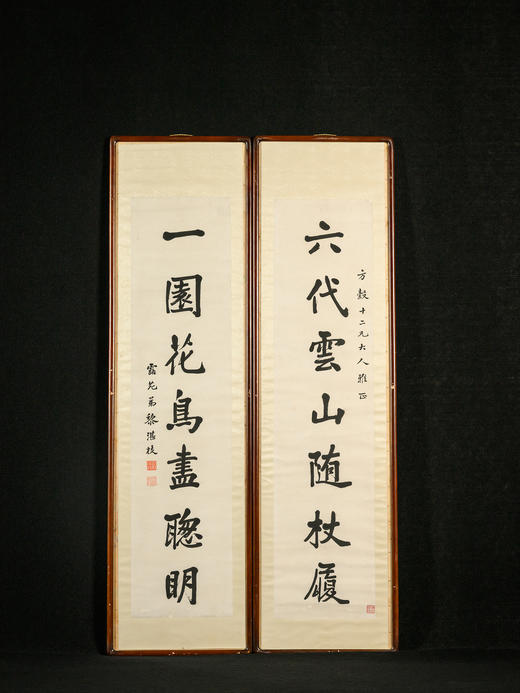 六代雲山随杖履
方毅十二兄大人雅正
一園花鳥盡聰明
露苑弟黎湛枝